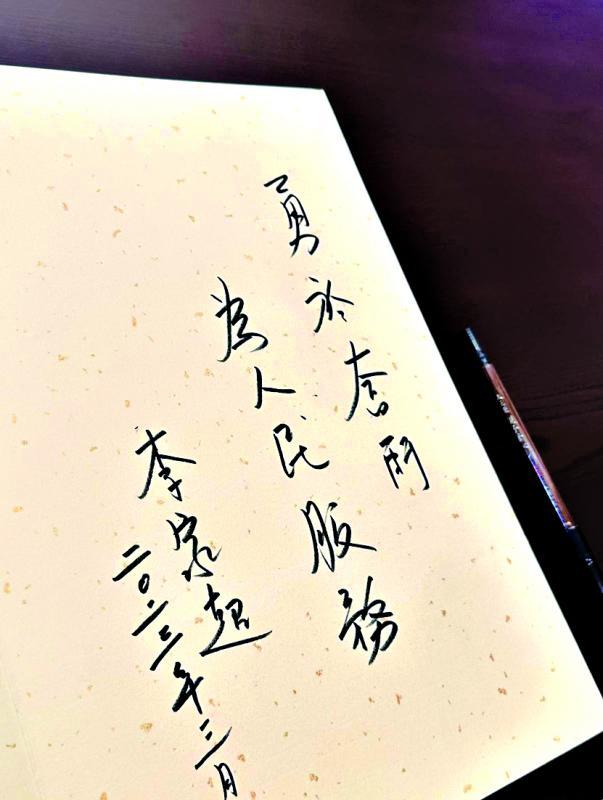 勇於奮鬥
為人民服務
李家超
二〇二三年三月